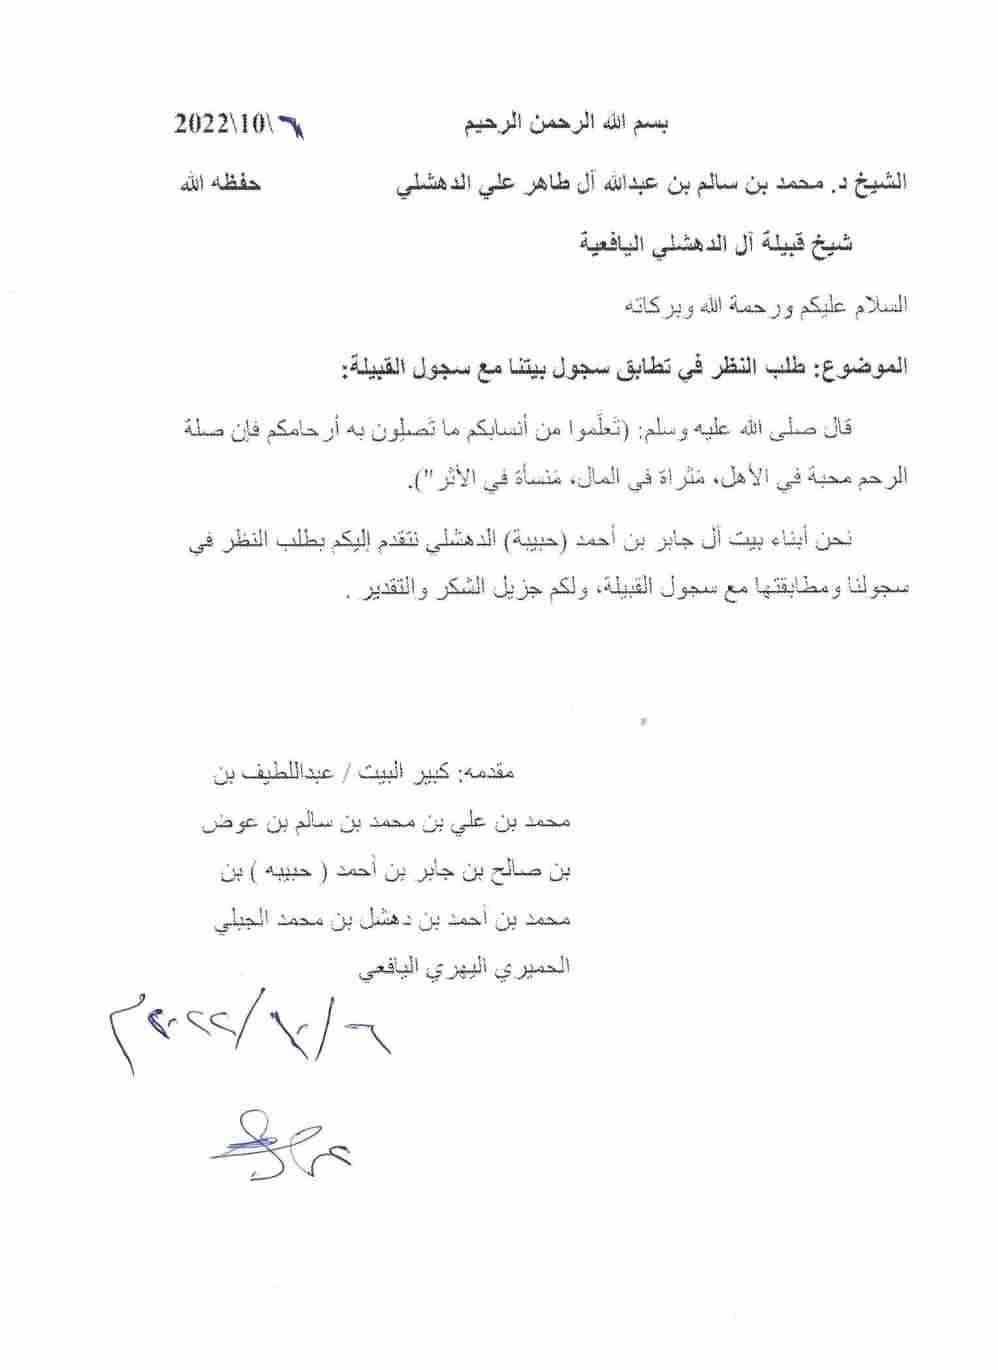 بسم الله الرحمن الرحيم ٦\10\2022
الشيخ د. محمد بن سالم بن عبدالله آل طاهر علي الدهشلي حفظه الله
شيخ قبيلة آل الدهشلي اليافعية
السلام عليكم ورحمة الله وبركاته
الموضوع: طلب النظر في تطابق سجول بيتنا مع سجول القبيلة:
قال صلى الله عليه وسلم: (تَعلَّموا من أنسابكم ما تَصلِون به أرحامكم فإن صلة
الرحم محبة في الأهل، مَثراة في المال، مَنسأة في الأثر").
نحن أبناء بيت آل جابر بن أحمد (حبيبة) الدهشلي نتقدم إليكم بطلب النظر في
سجولنا ومطابقتها مع سجول القبيلة، ولكم جزيل الشكر والتقدير .
مقدمه: كبير البيت / عبداللطيف بن
محمد بن علي بن محمد بن سالم بن عوض
بن صالح بن جابر بن أحمد ( حبيبه ) بن
محمد بن أحمد بن دهشل بن محمد الجبلي
الحميري اليهري اليافعي
٦/١٠/٢٠٢٢م